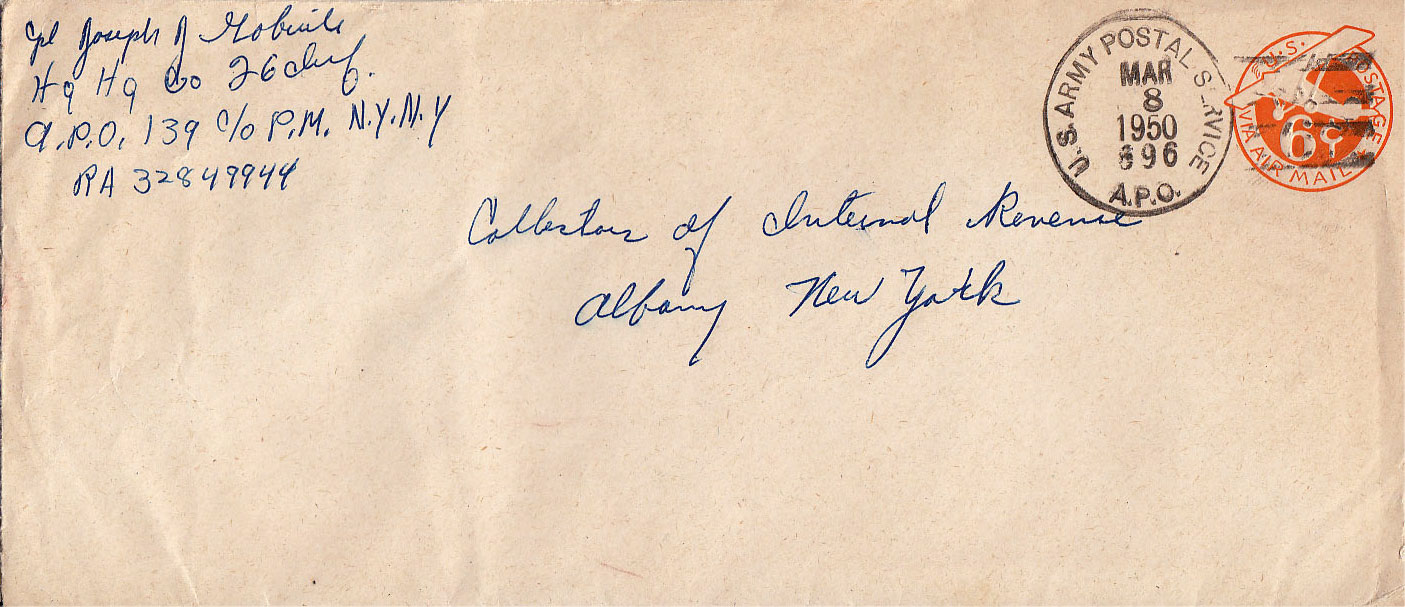 Cpl Joseph J
Hq Hq Co 26th Inf.
A.P.O. 139 c/o P.M. N.Y. N.Y
RA 32849944
U.S. ARMY POSTAL SERVICE
MAR
8
1950
696
A.P.O.
U.S. POSTAGE
6¢
VIA AIR MAIL
Collector of Internal Revenue
Albany New York